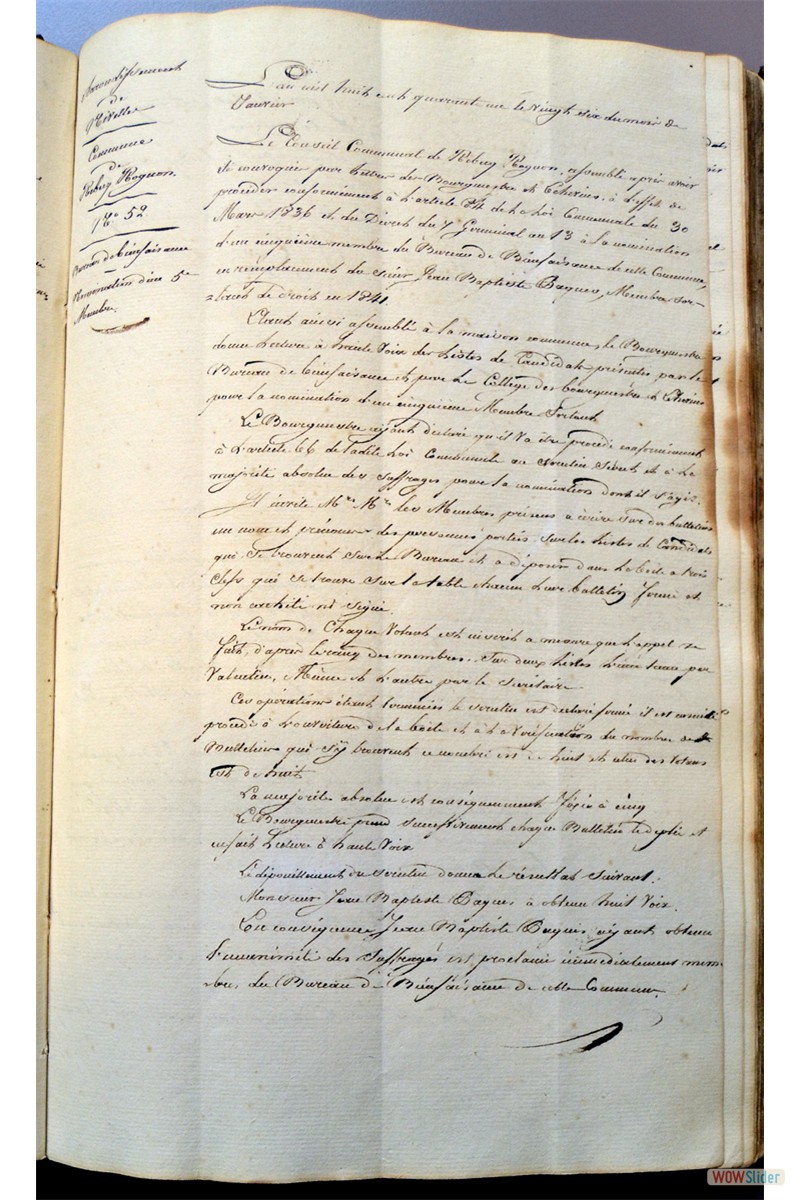 Arrondissement
de
Nivelles
Commune
de
Rebecq Rognon
N° 52
Bureau de bienfaisance
Nomination d'un 5e
Membre.
L'an mil huit cent quarante un le vingt six du mois de
Janvier
Le Conseil Communal de Rebecq Rognon, assemblé après avoir
été convoqué par lettres des Bourgmestre et Echevins à l'effet de
procéder conformément à l'article 84 de la Loi Communale du 30
Mars 1836 et du Décret du 7 Germinal an 13 à la nomination
d'un cinquième membre du Bureau de Bienfaisance de cette Commune,
en remplacement du sieur Jean Baptiste Daynes, Membre sor-
tant de droit en 1841.
Etant ainsi assemblé à la maison commune, le Bourgmestre
donne lecture à haute voix des listes de Candidats présentés par le
Bureau de bienfaisance et par le Collège des bourgmestre et Echevins
pour la nomination d'un cinquième Membre Sortant
Le Bourgmestre ayant déclaré qu'il va être procédé conformément
à l'article 66 de ladite Loi Communale au Scrutin Secret et à la
majorité absolue des suffrages pour la nomination dont il s'agit.
Il invite Mrs Mrs les Membres présens à écrire sur des bulletins
un nom et prénoms des personnes portées sur les listes de Candidats
qui se trouvent sur le Bureau et à déposer dans la boîte à trois
clefs qui se trouve sur la table chacun leur bulletin fermé et
non cacheté ni signé.
Le nom de Chaque Votant est inscrit à mesure que l'appel se
fait, d'après le rang des membres, sur deux listes l'une tenue par
Valentin, et l'autre par le secrétaire
Ces opérations étant terminées le scrutin est déclaré fermé il est ensuite
procédé à l'ouverture de la boîte et à la vérification du nombre de
Bulletins qui s'y trouvent ce nombre est de huit et celui des Votans
est de huit.
La majorité absolue est conséquemment fixée à cinq
Le Bourgmestre prend successivement chaque Bulletin le déplie et
en fait lecture à haute voix
Le dépouillement du scrutin donne le résultat suivant.
Monsieur Jean Baptiste Daynes à obtenu huit Voix.
En conséquence Jean Baptiste Daynes ayant obtenu
l'unanimité des suffrages est proclamé immédiatement mem-
bre du Bureau de Bienfaisance de cette Commune.
WOWSlider